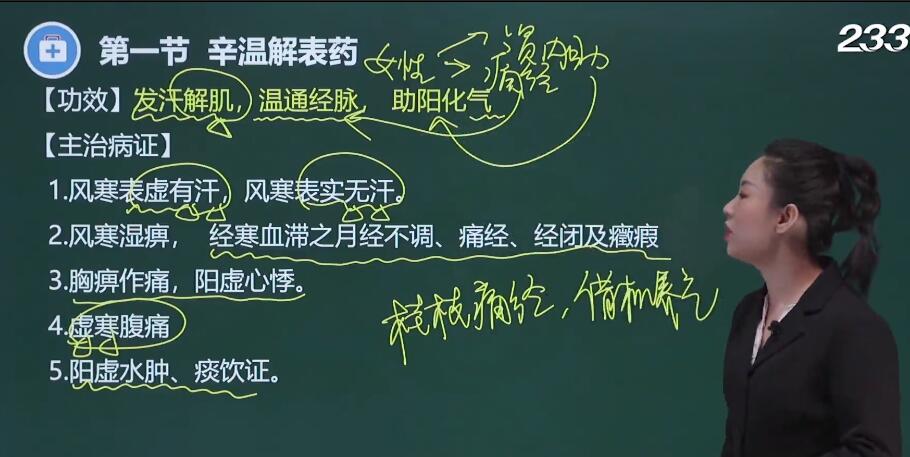 第一节 辛温解表药
233
女性
痛经
【功效】发汗解肌，温通经脉，助阳化气
【主治病证】
1.风寒表虚有汗，风寒表实无汗。
2.风寒湿痹， 经寒血滞之月经不调、痛经、经闭及癥瘕
3.胸痹作痛，阳虚心悸。
4.虚寒腹痛
5.阳虚水肿、痰饮证。
桂枝痛经，借机暴气